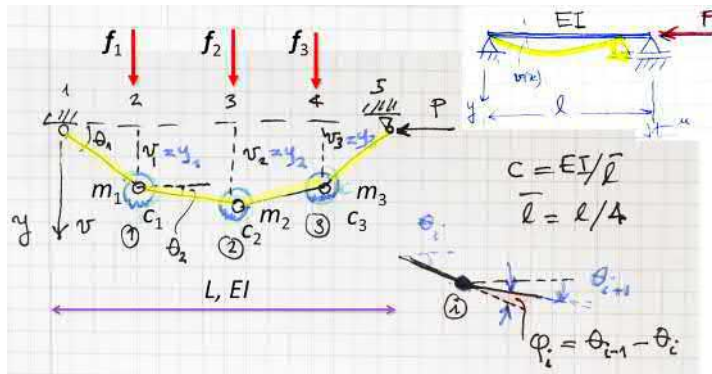 f1 f2 f3
1 2 3 4 5
θ1 v1 = y1 v2 = y2 v3 = y3 P
m1 m2 m3
c1 c2 c3
θ2
① ② ③
y v
L, EI
EI P
v(x)
y l u
c = EI/l̄
l̄ = l/4
θi
θi+1
i
φi = θi-1 - θi